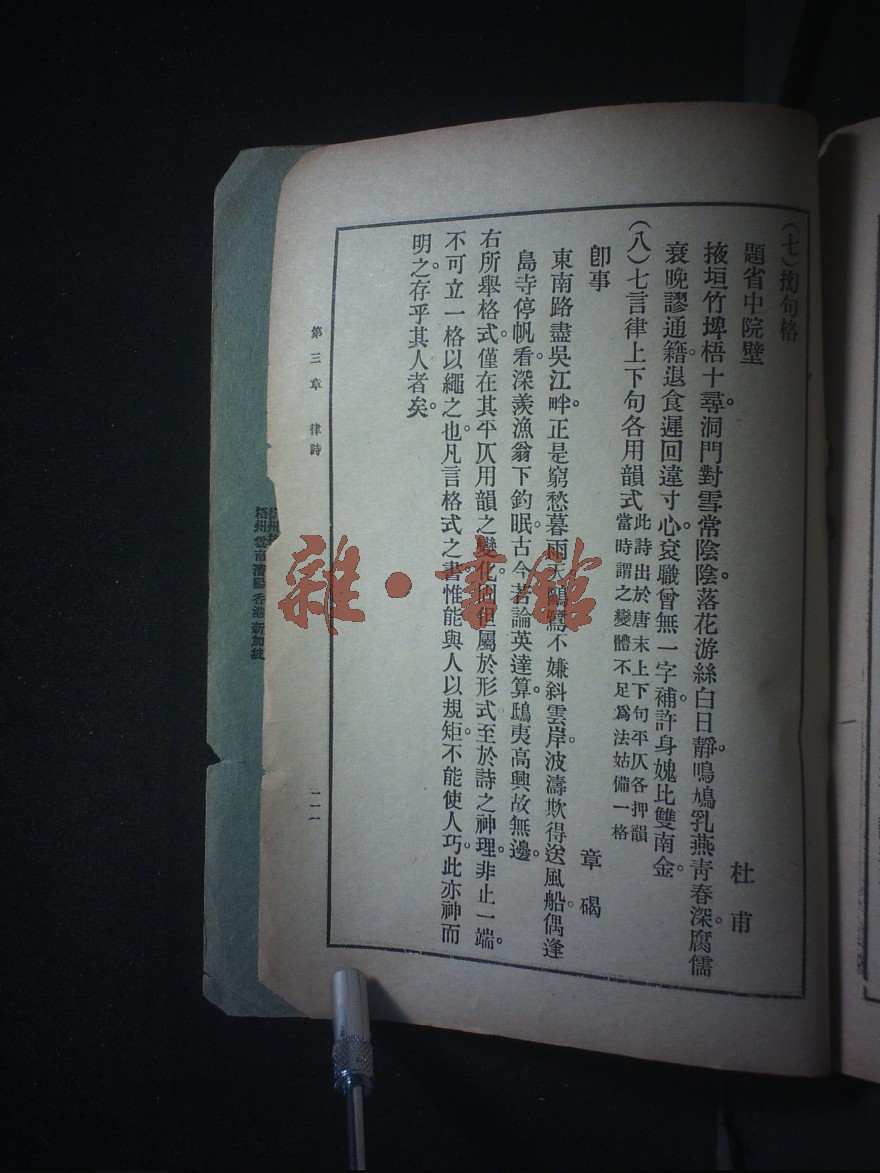 (七)拗句格
題省中院壁　杜甫
掖垣竹埤梧十尋。洞門對雪常陰陰。落花游絲白日靜。鳴鳩乳燕靑春深。腐儒
衰晚謬通籍。退食遲回違寸心。袞職曾無一字補。許身媿比雙南金。
(八)七言律上下句各用韻式 此詩出於唐末上下句平仄各押韻
當時謂之變體不足爲法姑備一格
卽事　章碣
東南路盡吳江畔。正是窮愁暮雨天。鷗鷺不嫌斜雲岸。波濤欺得送風船。偶逢
島寺停帆看。深羨漁翁下釣眠。古今若論英達算。鴟夷高興故無邊。
右所舉格式。僅在其平仄用韻之變化。固但屬於形式。至於詩之神理。非止一端。
不可立一格以繩之也。凡言格式之書。惟能與人以規矩。不能使人巧。此亦神而
明之。存乎其人者矣。
第三章　律詩
二一一
梧州 雲南 瀋陽 香港 新加坡
雜·書館